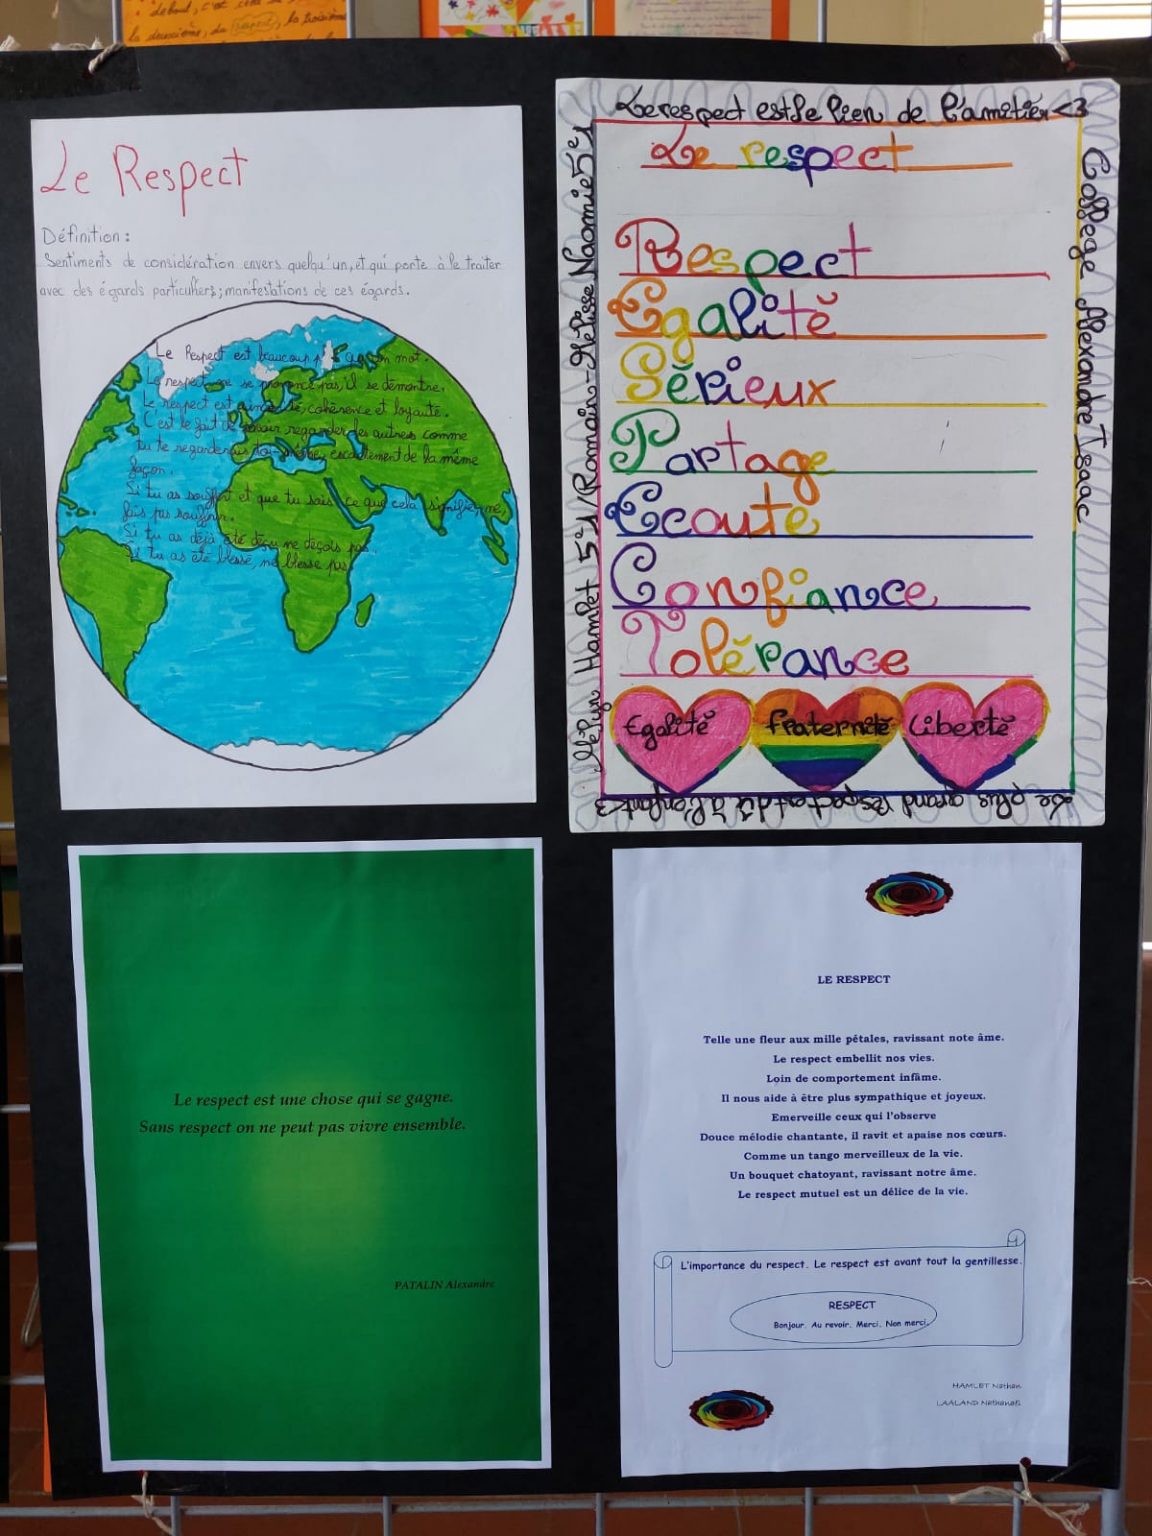 debout, c'est
la deuxième, du la troisième
Le Respect
Définition :
Sentiments de considération envers quelqu'un, et qui porte à le traiter
avec des égards particuliers; manifestations de ces égards.
Le Respect est beaucoup mot.
Le respect ne se prononce pas, il se démontre.
Le respect est cohérence et loyauté.
C'est le fait de savoir regarder les autres comme
tu te regarderais toi-même, de la même
façon.
Si tu as souffert et que tu sais ce que cela signifie, ne
fais pas souffrir.
Si tu as déjà été déçu, ne déçois pas.
Si tu as été blessé, ne blesse pas.
Le respect est le lien de l'amitiér <3
Le respect
Respect
Egalité
Sérieux
Partage
Ecoute
Confiance
Tolérance
Egalité fraternité Liberté
Hamlet 5e1/Romain-Mélisse Naomie 5e1
College Alexandre Isaac
Le plus grand respect est dû à l'enfant <3
Le respect est une chose qui se gagne.
Sans respect on ne peut pas vivre ensemble.
PATALIN Alexandre
LE RESPECT
Telle une fleur aux mille pétales, ravissant note âme.
Le respect embellit nos vies.
Loin de comportement infâme.
Il nous aide à être plus sympathique et joyeux.
Emerveille ceux qui l'observe
Douce mélodie chantante, il ravit et apaise nos cœurs.
Comme un tango merveilleux de la vie.
Un bouquet chatoyant, ravissant notre âme.
Le respect mutuel est un délice de la vie.
L'importance du respect. Le respect est avant tout la gentillesse.
RESPECT
Bonjour. Au revoir. Merci. Non merci.
HAMLET Nathan
LAALAND